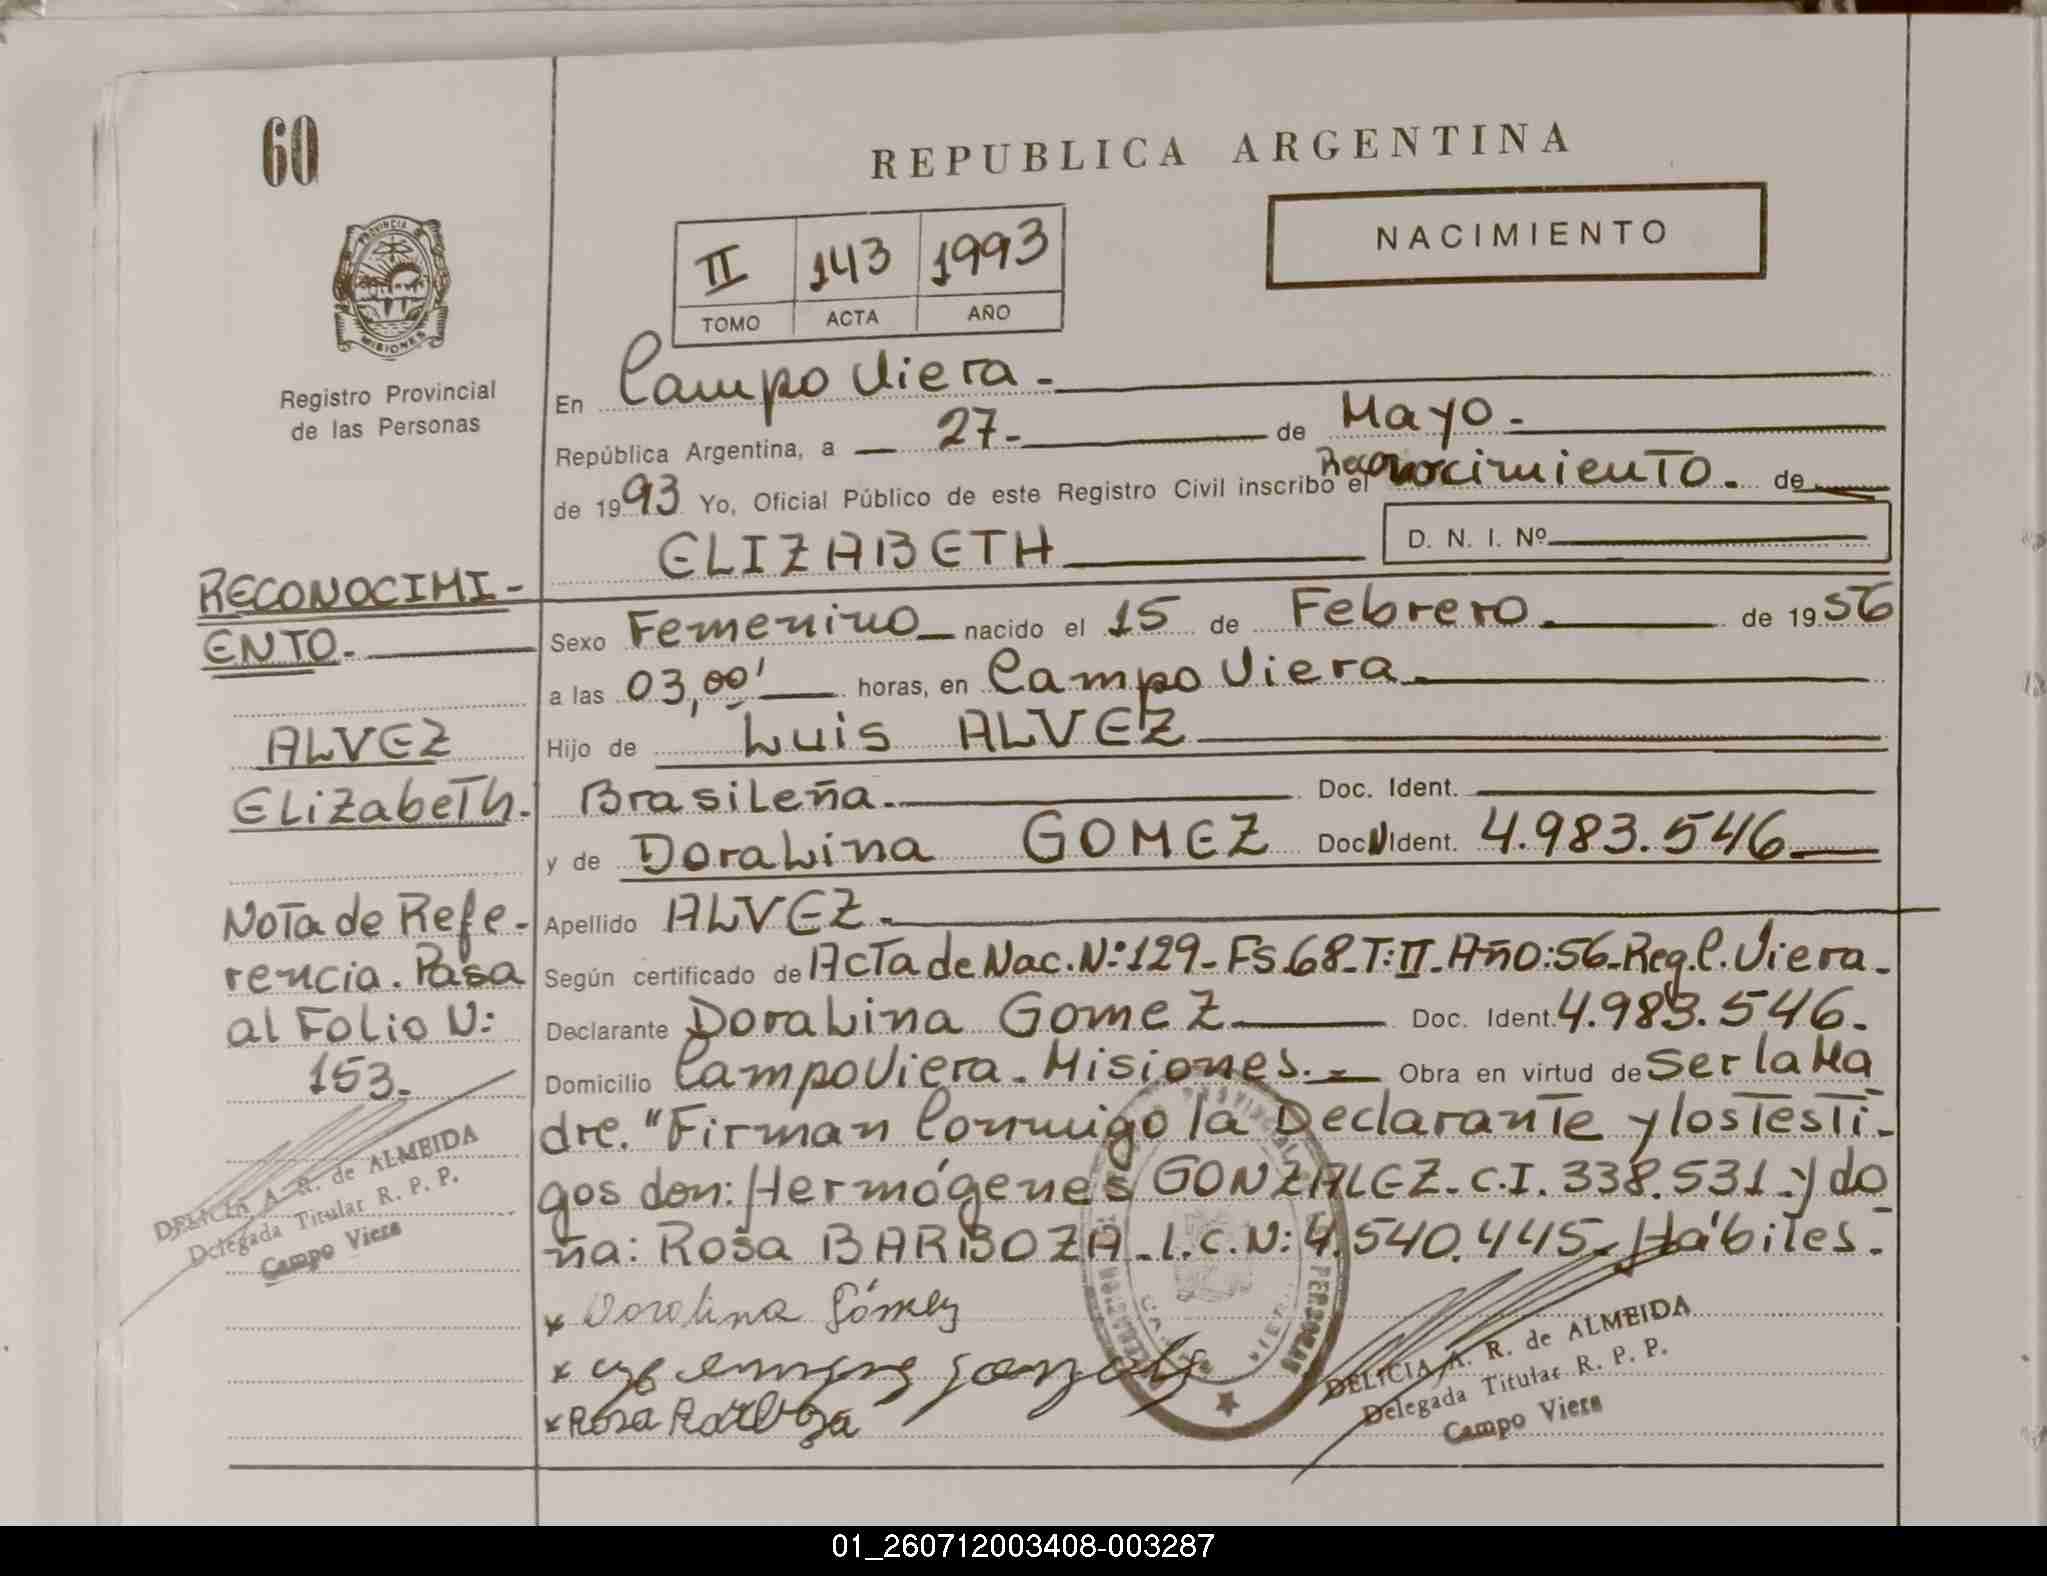 60
REPUBLICA ARGENTINA
NACIMIENTO
II 143 1993
TOMO ACTA AÑO
PROVINCIA
MISIONES
Registro Provincial
de las Personas
En Campo Viera.-
República Argentina, a 27- de Mayo.-
de 1993 Yo, Oficial Público de este Registro Civil inscribo el Reconocimiento. de
ELIZABETH D. N. I. Nº
RECONOCIMI-
ENTO.-
Sexo Femenino nacido el 15 de Febrero. de 1956
a las 03,00' horas, en Campo Viera
ALVEZ
Elizabeth.
Hijo de Luis ALVEZ
Brasileña. Doc. Ident.
y de Doralina GOMEZ Doc N Ident. 4.983.546
Nota de Refe-
rencia. Pasa
al Folio N:
153.-
Apellido ALVEZ.
Según certificado de Acta de Nac. Nº 129- Fs. 68- T: II- Año: 56- Reg. C. Viera.
Declarante Doralina Gomez Doc. Ident. 4.983.546.
Domicilio Campo Viera. Misiones.- Obra en virtud de Ser la Ma
dre. "Firman Conmigo la Declarante y los Testi-
gos don: Hermógenes GONZALEZ. C.I. 338.531 y do
ña: Rosa BARBOZA. L.C.N: 4.540.445. Hábiles.-
x Doralina Gómez
x
x Rosa Barboza
DELICIA A. R. de ALMEIDA
Delegada Titular R. P. P.
Campo Viera
DELICIA A. R. de ALMEIDA
Delegada Titular R. P. P.
Campo Viera
01_260712003408-003287